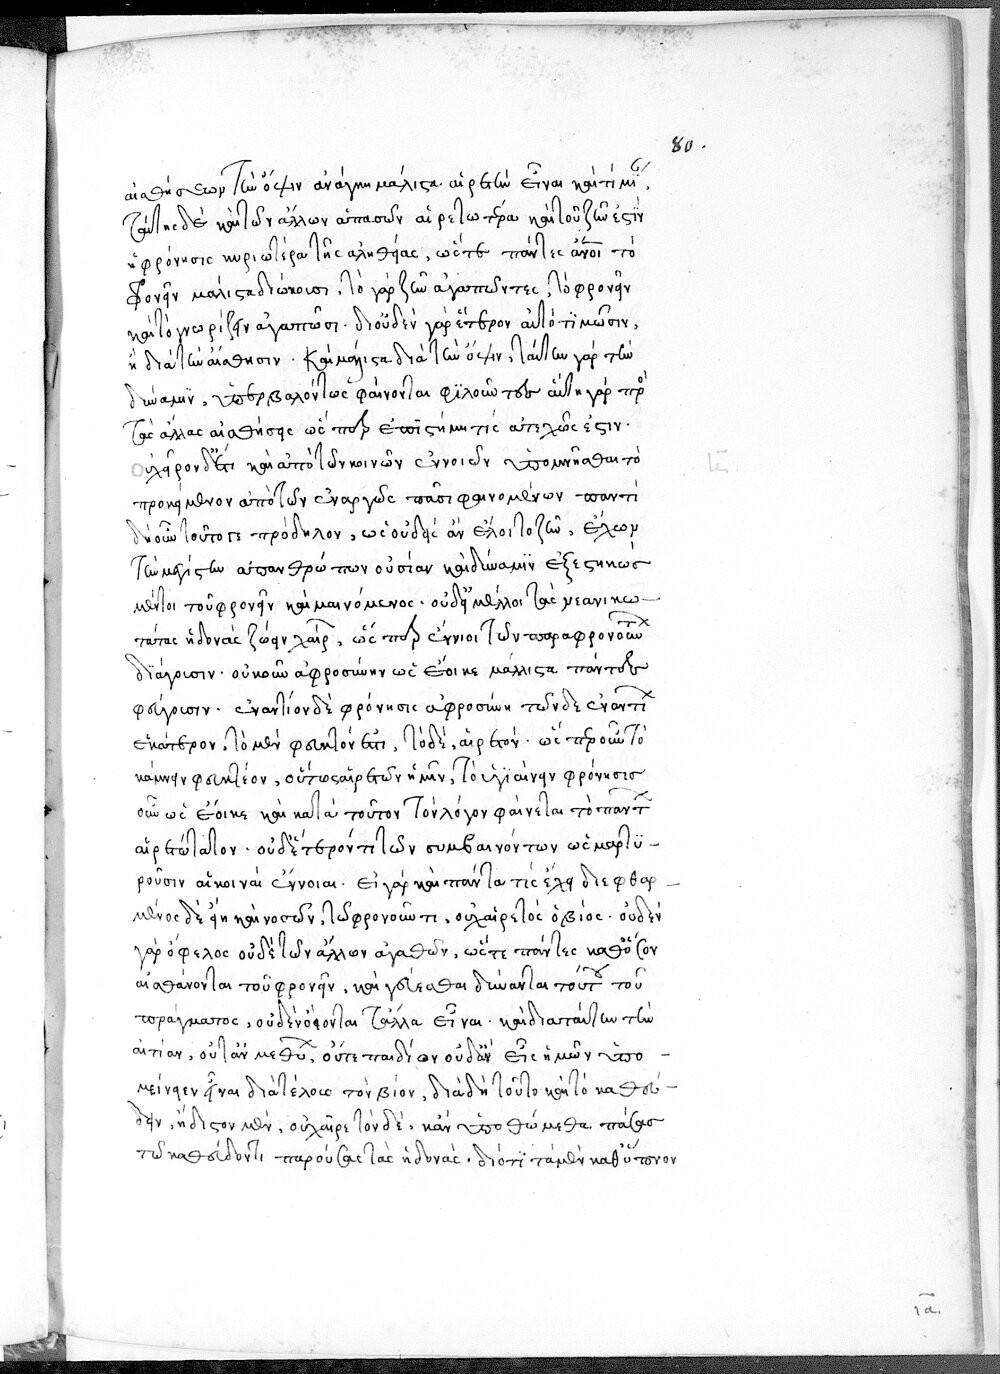 80.
αἰσθήσεων τὴν ὄψιν ἀνάγκη μάλιστα αἱρετὴν εἶναι καὶ τιμί,
ταύτης δὲ καὶ τῶν ἄλλων ἁπασῶν αἱρετωτέρα καὶ τοῦ ζῆν ἐστὶν
ἡ φρόνησις κυριωτέρα τῆς ἀληθείας, ὥστε πάντες ἄνοι τὸ
φρονεῖν μάλιστα διώκουσι, τὸ γὰρ ζῆν ἀγαπῶντες, τὸ φρονεῖν
καὶ τὸ γνωρίζειν ἀγαπῶσι. δι' οὐδὲν γὰρ ἕτερον αὐτὸ τιμῶσιν,
ἢ διὰ τὴν αἴσθησιν. καὶ μάλιστα διὰ τὴν ὄψιν, ταύτην γὰρ τὴν
δύναμιν, ὑπερβαλόντως φαίνονται φιλοῦντες αὕτη γὰρ πρὸς
τὰς ἄλλας αἰσθήσεις ὥσπερ ἐπιστήμη τίς ἀτεχῶς ἐστιν.
Οὐ χεῖρον δ' ἔτι καὶ ἀπὸ τῶν κοινῶν ἐννοιῶν ὑπομνῆσθαι τὸ
προκείμενον ἀπὸ τῶν ἐναργῶς πᾶσι φαινομένων παντὶ
δὴ οὖν τοῦτό γε πρόδηλον, ὡς οὐδεὶς ἂν ἕλοιτο ζῆν, ἔχων
τὴν μεγίστην ἀπ' ἀνθρώπων οὐσίαν καὶ δύναμιν ἐξεστηκὼς
μέντοι τοῦ φρονεῖν καὶ μαινόμενος. οὐδ' εἰ μέλλοι τὰς νεανικω-
τάτας ἡδονὰς ζώειν χαίρ, ὥσπερ ἔννιοι τῶν παραφρονούντ
διάγουσιν. οὐκοῦν ἀφροσύνην ὡς ἔοικε μάλλιστα πάντες
φεύγουσιν. ἐναντίον δὲ φρόνησις ἀφροσύνη τῶν δὲ ἐναντί
ἑκάτερον, τὸ μὲν φευκτόν ἐστι, τὸ δὲ, αἱρετόν. ὥσπερ οὖν τὸ
κάμνειν φευκτέον, οὕτως αἱρετὸν ἡμῖν, τὸ ὑγιαίνειν φρόνησις
οὖν ὡς ἔοικε καὶ κατὰ τοῦτον τὸν λόγον φαίνεται τὸ πάντ
αἱρετώτατον. οὐ δι' ἕτερόν τι τῶν συμβαινόντων ὡς μαρτυ-
ροῦσιν αἱ κοιναὶ ἔννοιαι. εἰ γὰρ καὶ πάντα τίς ἔχη διεφθαρ-
μένος δὲ εἴη καὶ νοσῶν, τῶ φρονοῦντι, οὐχ αἱρετὸς ὁ βίος. οὐδὲν
γὰρ ὄφελος οὐδὲ τῶν ἄλλων ἀγαθῶν, ὥστε πάντες καθ' ὅσον
αἰσθάνονται τοῦ φρονεῖν, καὶ γεύεσθαι δύνανται τούτου τοῦ
πράγματος, οὐδὲν οἴονται τἄλλα εἶναι. καὶ διὰ ταύτην τὴν
αἰτίαν, οὔτ' ἂν μεθύ, οὔτε παιδίον οὐδ' ἂν εἷς ἡμῶν ὑπο-
μείνειεν εἶναι διὰ τέλους τὸν βίον, διὰ δὴ τοῦτο καὶ τὸ καθεύ-
δειν, ἥδιστον μὲν, οὐχ αἱρετὸν δέ. κἂν ὑποθώμεθα πάσας
τῶ καθεύδοντι παρούσας τὰς ἡδονάς. διότι τὰ μὲν καθ' ὕπνον
ια.